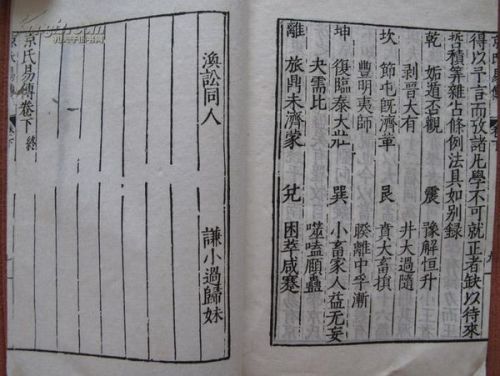 得以予言而攷諸凡學不可就正者缺以待來
哲積筭雜占條例法具如别録
乾 姤遁否觀 震 豫解恒升
剥晉大有 井大過隨
坎 節屯既濟革 艮 賁大畜損
豐明夷師 睽離中孚漸
坤 復臨泰大壯 巽 小畜家人益无妄
夬需比 噬嗑頤蠱
離 旅鼎未濟蒙 兌 困萃咸蹇
渙訟同人 謙小過歸妹
京氏易傳卷下 終